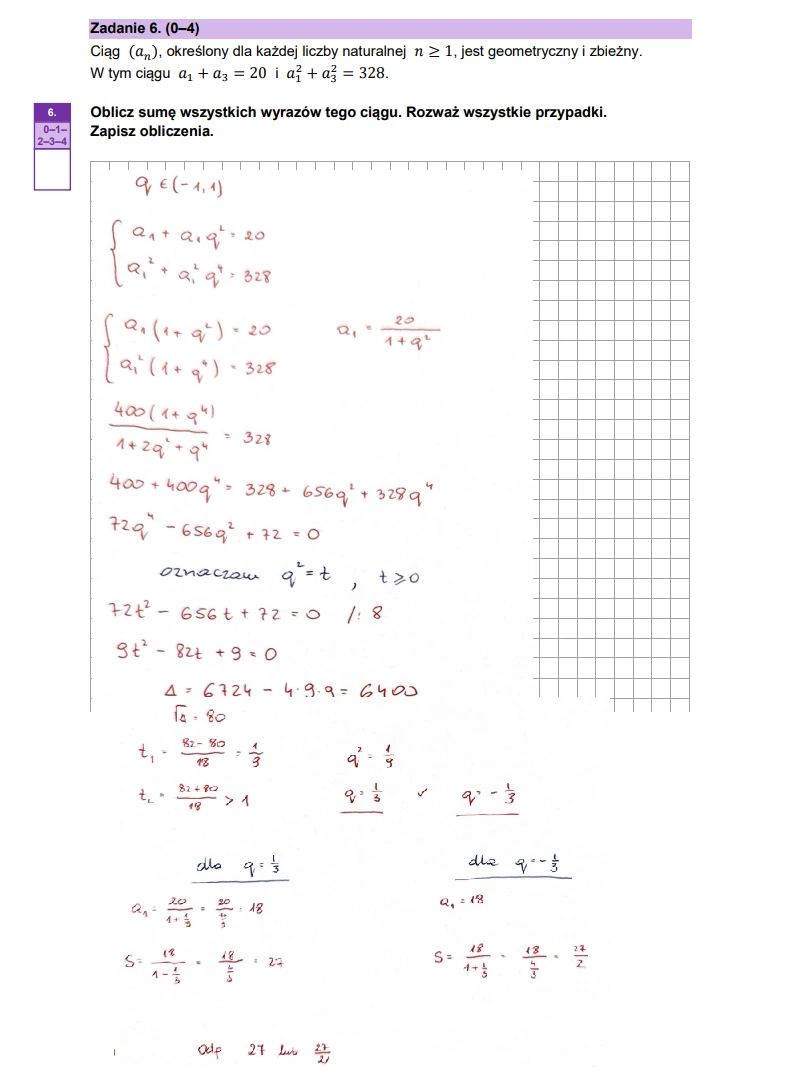 Zadanie 6. (0–4)
Ciąg (aₙ), określony dla każdej liczby naturalnej n ≥ 1, jest geometryczny i zbieżny.
W tym ciągu a₁ + a₃ = 20 i a₁² + a₃² = 328.
6.
0–1–
2–3–4
Oblicz sumę wszystkich wyrazów tego ciągu. Rozważ wszystkie przypadki.
Zapisz obliczenia.
q ∈ (-1, 1)
{ a₁ + a₁q² = 20
a₁² + a₁²q⁴ = 328
{ a₁(1+q²) = 20 a₁ = 20/(1+q²)
a₁²(1+q⁴) = 328
400(1+q⁴)/(1+2q²+q⁴) = 328
400 + 400q⁴ = 328 + 656q² + 328q⁴
72q⁴ - 656q² + 72 = 0
oznaczam q² = t , t ⩾ 0
72t² - 656t + 72 = 0 /: 8
9t² - 82t + 9 = 0
Δ = 6724 - 4·9·9 = 6400
√Δ = 80
t₁ = (82-80)/18 = 1/9 q² = 1/9
t₂ = (82+80)/18 > 1 q = 1/3 ✓ q = -1/3
dla q = 1/3 dla q = -1/3
a₁ = 20/(1+1/9) = 20/(10/9) = 18 a₁ = 18
S = 18/(1-1/3) = 18/(2/3) = 27 S = 18/(1+1/3) = 18/(4/3) = 27/2
Odp 27 lub 27/2